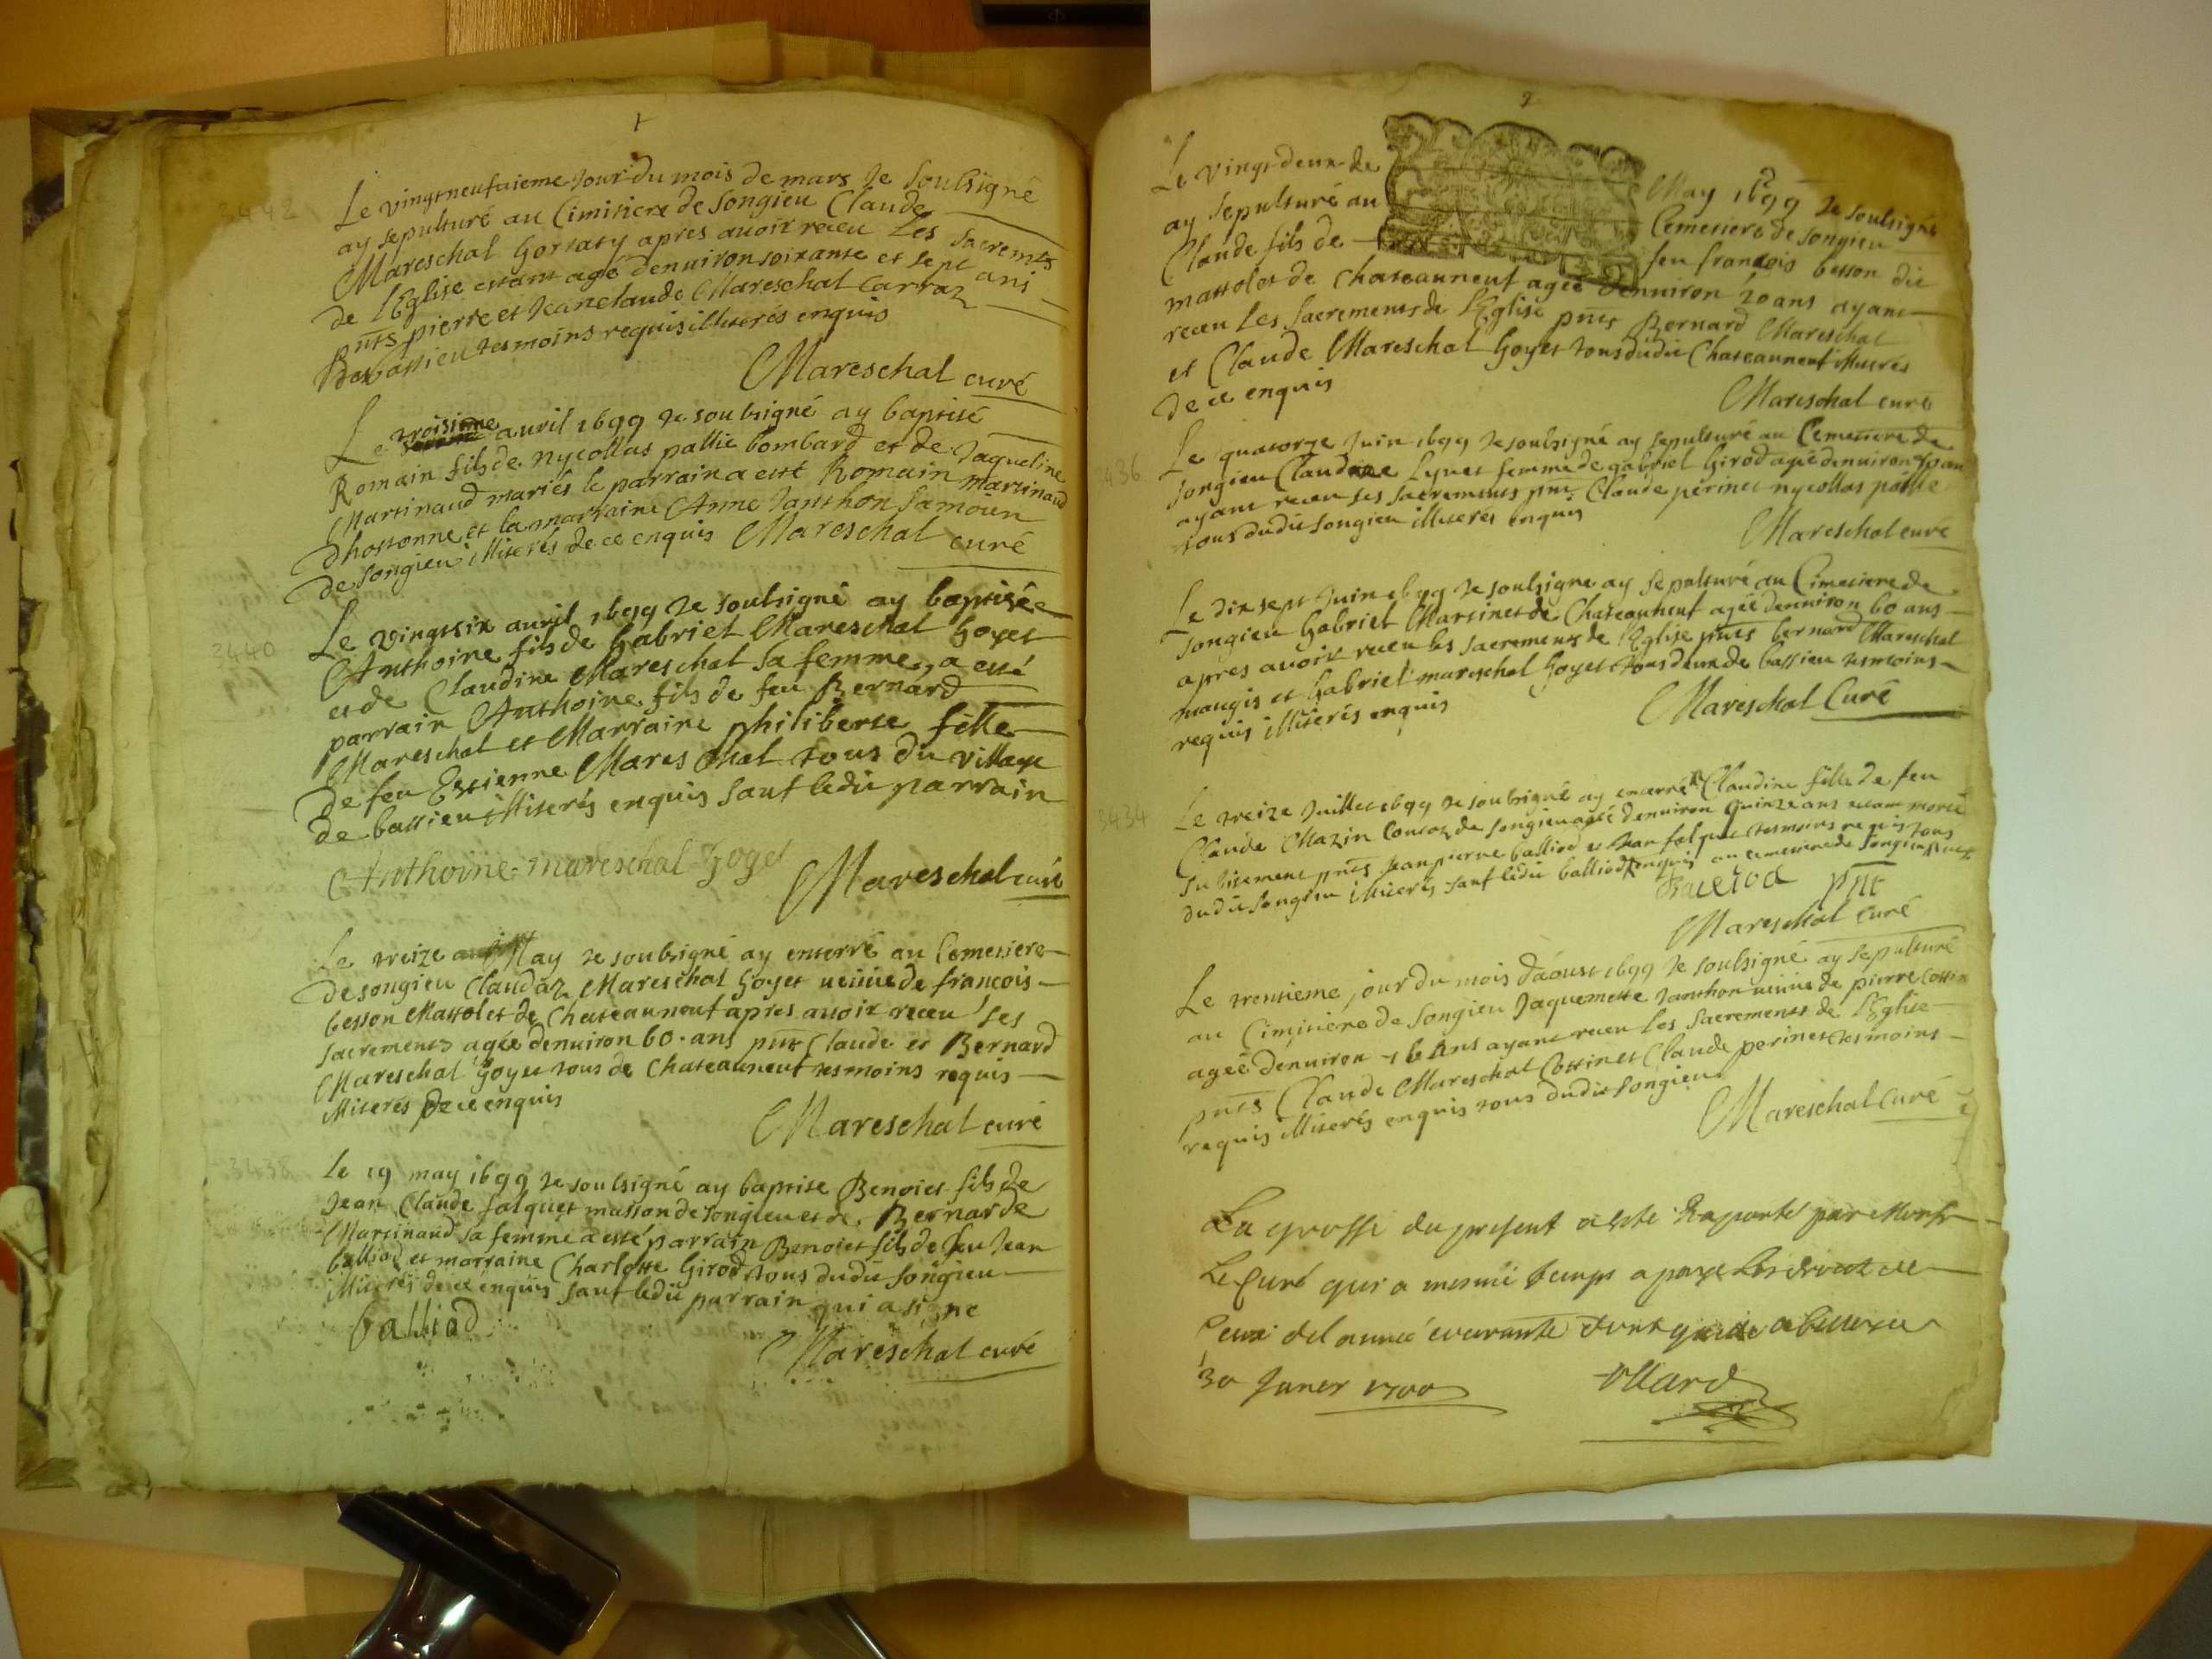 3442
Le vingtneufaieme jour du mois de mars Je soubsigné
ay sepulturé au Cimitiere de Songieu Claude
Mareschal Gorraty apres auoir receu les sacremts
de lEglise estant agé denuiron soixante et sept ans
pnts pierre et Jeanclaude Mareschal Carraz
de bassieu tesmoins requis illiterés enquis
Mareschal curé
Le troisime auril 1699 Je soubsigné ay baptisé
Romain fils de nycollas pallie bombard et de Jaqueline
Martinaud mariés le parrain a esté Romain martinaud
dhostonne et la marraine Anne Janthon Samoin
de songieu illiterés de ce enquis Mareschal curé
3440
Le vingtsix auril 1699 Je soubsigné ay baptisée
Anthoine fils de Gabriel Mareschal Goyet
et de Claudine Mareschal sa femme, a esté
parrain Anthoine fils de feu Bernard
Mareschal et Marraine philiberte fille
de feu Estienne Mareschal tous du village
de bassieu illiterés enquis sauf ledit parrain
Anthoine mareschal Goyet
Mareschal curé
Le treize May Je soubsigné ay enterré au Cemetiere
de songieu Claudaz Mareschal Goyet veuue de francois
besson Mattolet de Chateauneuf apres auoir receu les
sacrements agée denuiron 60 . ans pnts Claude et Bernard
Mareschal Goyet tous de Chateauneuf tesmoins requis
illiterés de ce enquis
Mareschal curé
3438
le 19 may 1699 Je soubsigné ay baptise Benoiet fils de
Jean Claude falquet masson de songieu et de Bernarde
Martinaud sa femme a esté parrain Benoiet fils de feu Jean
balliod et marraine Charlotte Girod tous dudit songieu
illiterés de ce enquis sauf ledit parrain qui a signe
balliod
Mareschal curé
2
Le vingtdeux de May 1699 Je soubsigné
ay sepulturé au Cemetiere de songieu
Claude fils de feu francois besson dit
mattolet de chateauneuf agée denuiron 20 ans ayant
receu les sacrements de lEglise pnts Bernard Mareschal
et Claude Mareschal Goyet tous dudit Chateauneuf illiterés
de ce enquis
Mareschal curé
3436
Le quatorze Juin 1699 Je soubsigné ay sepulturé au Cemetiere de
songieu Claudine Lynet femme de gabriel Girod agée denuiron ans
ayant receu les sacrements pnts Claude perinet nycollas pallie
tous dudit songieu illiterés enquis
Mareschal curé
Le dixsept Juin 1699 Je soubsigne ay sepulturé au Cimetiere de
songieu Gabriel Martinet de Chateauneuf agée denuiron 60 ans
apres auoir receu les sacrements de lEglise pnts bernard Mareschal
maugis et Gabriel mareschal Goyet tous deux de bassieu tesmoins
requis illiterés enquis
Mareschal Curé
3434
Le treize Juillet 1699 Je soubsigné ay enterré Claudine fille de feu
Claude Mazin Coucoz de songieu agée denuiron quinze ans estant morte
subitement pnts Jeanpierre balliod et Jean falquet tesmoins requis tous
dudit songieu illiterés sauf ledit balliod enquis au cemetiere de songieu
balliod pnt
Mareschal curé
Le trentieme jour du mois daoust 1699 Je soubsigné ay sepulturé
au Cimitiere de songieu Jaquemette Janthon veuue de pierre Cottin
agée denuiron ans ayant receu les sacrements de lEglise
pnts Claude Mareschal Cottin et Claude perinet tesmoins
requis illiterés enquis tous dudit songieu
Mareschal Curé
La grosse du present a esté Raporté par Monsr
Le Curé qui a mesme temps a payé les droits de
ceux de lannée courante dont quitte a
30 Janer 1700